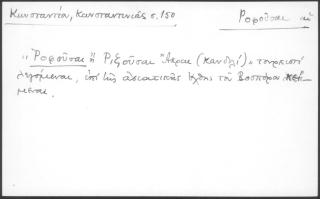 Κωνσταντία, Κωνσταντινιάς σ. 150
Ροφοῦσαι αἱ
"Ροφοῦσαι ἢ Ριζοῦσαι Ἄκραι (Κανδιλί), τουρκιστὶ
λεγόμεναι, ἐπὶ τῆς ἀσιατικῆς ὄχθης τοῦ Βοσπόρου κεί-
μεναι.